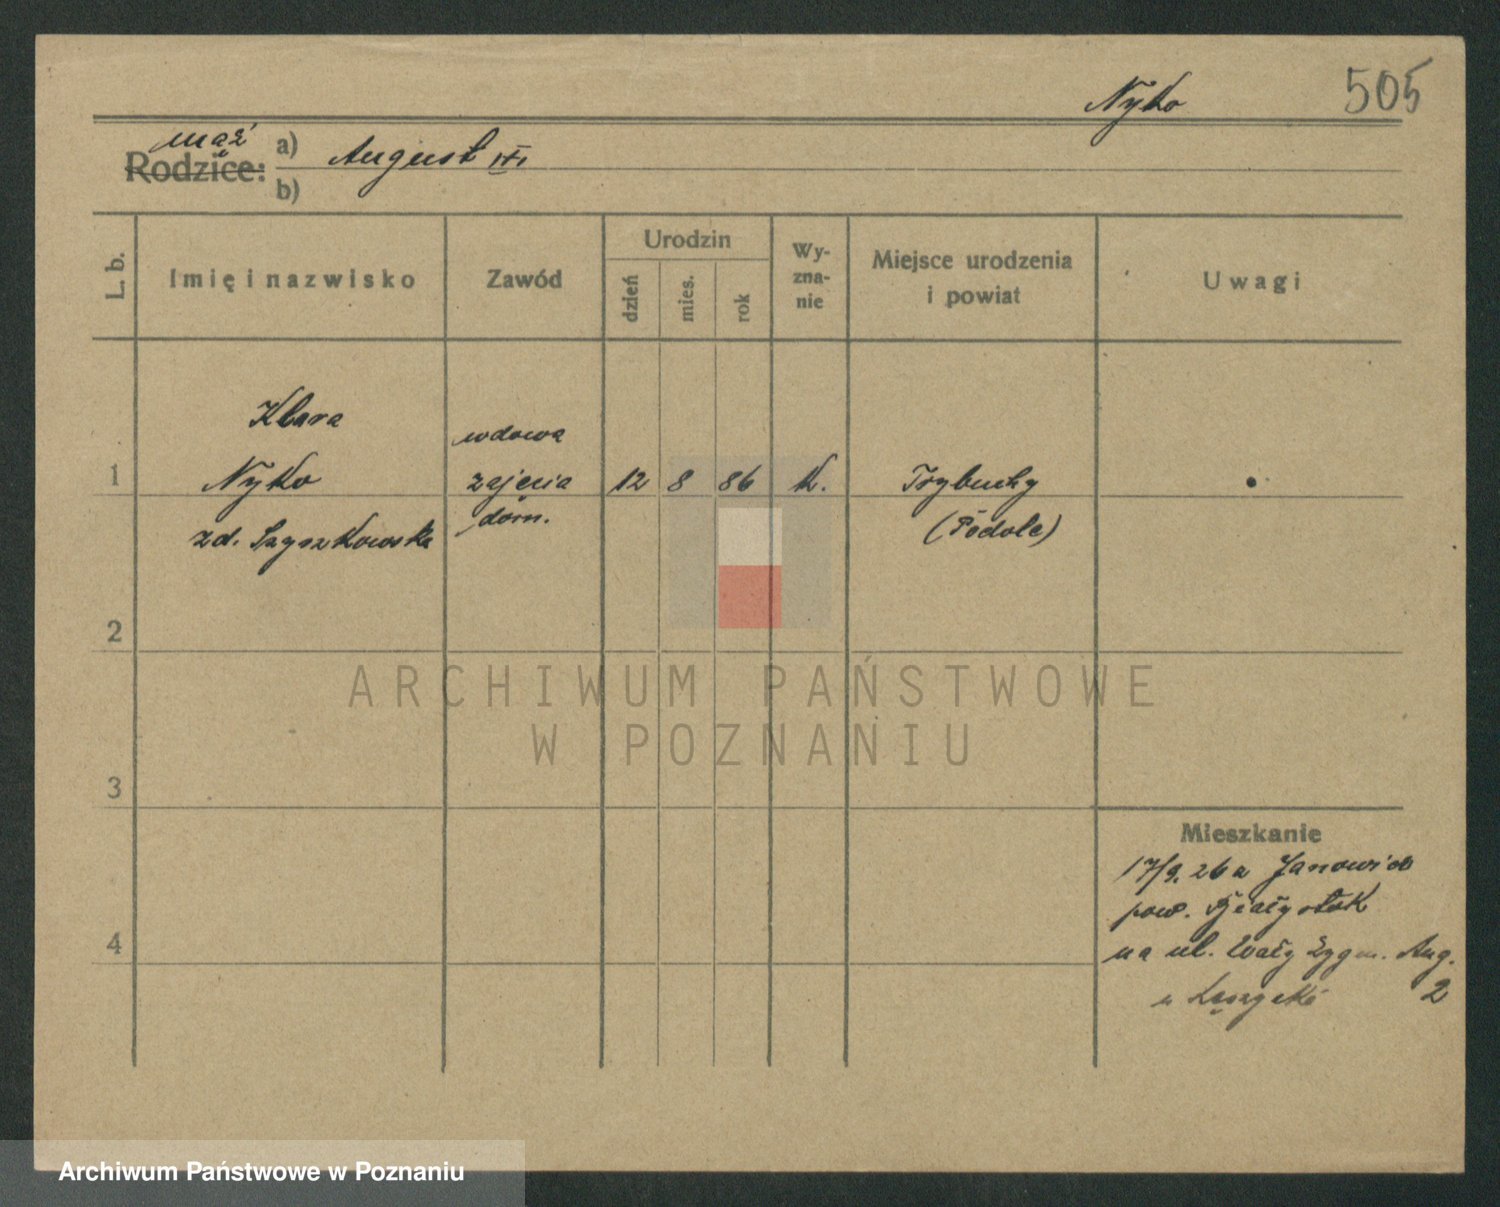 505
Nyko
mąż
Rodzice: a) August
b)
L. b.
Imię i nazwisko
Zawód
Urodzin
dzień
mies.
rok
Wy-
zna-
nie
Miejsce urodzenia
i powiat
Uwagi
Klara
wdowa
1 Nyko zajęcia 12 8 86 k. Trybuchy
zd. Szyszkowska dom. (Podole)
2
3
4
Mieszkanie
17/9. 26 z Janowice
pow. Białystok
na ul. Wały Zygm. Aug.
u 2
ARCHIWUM PAŃSTWOWE
W POZNANIU
Archiwum Państwowe w Poznaniu